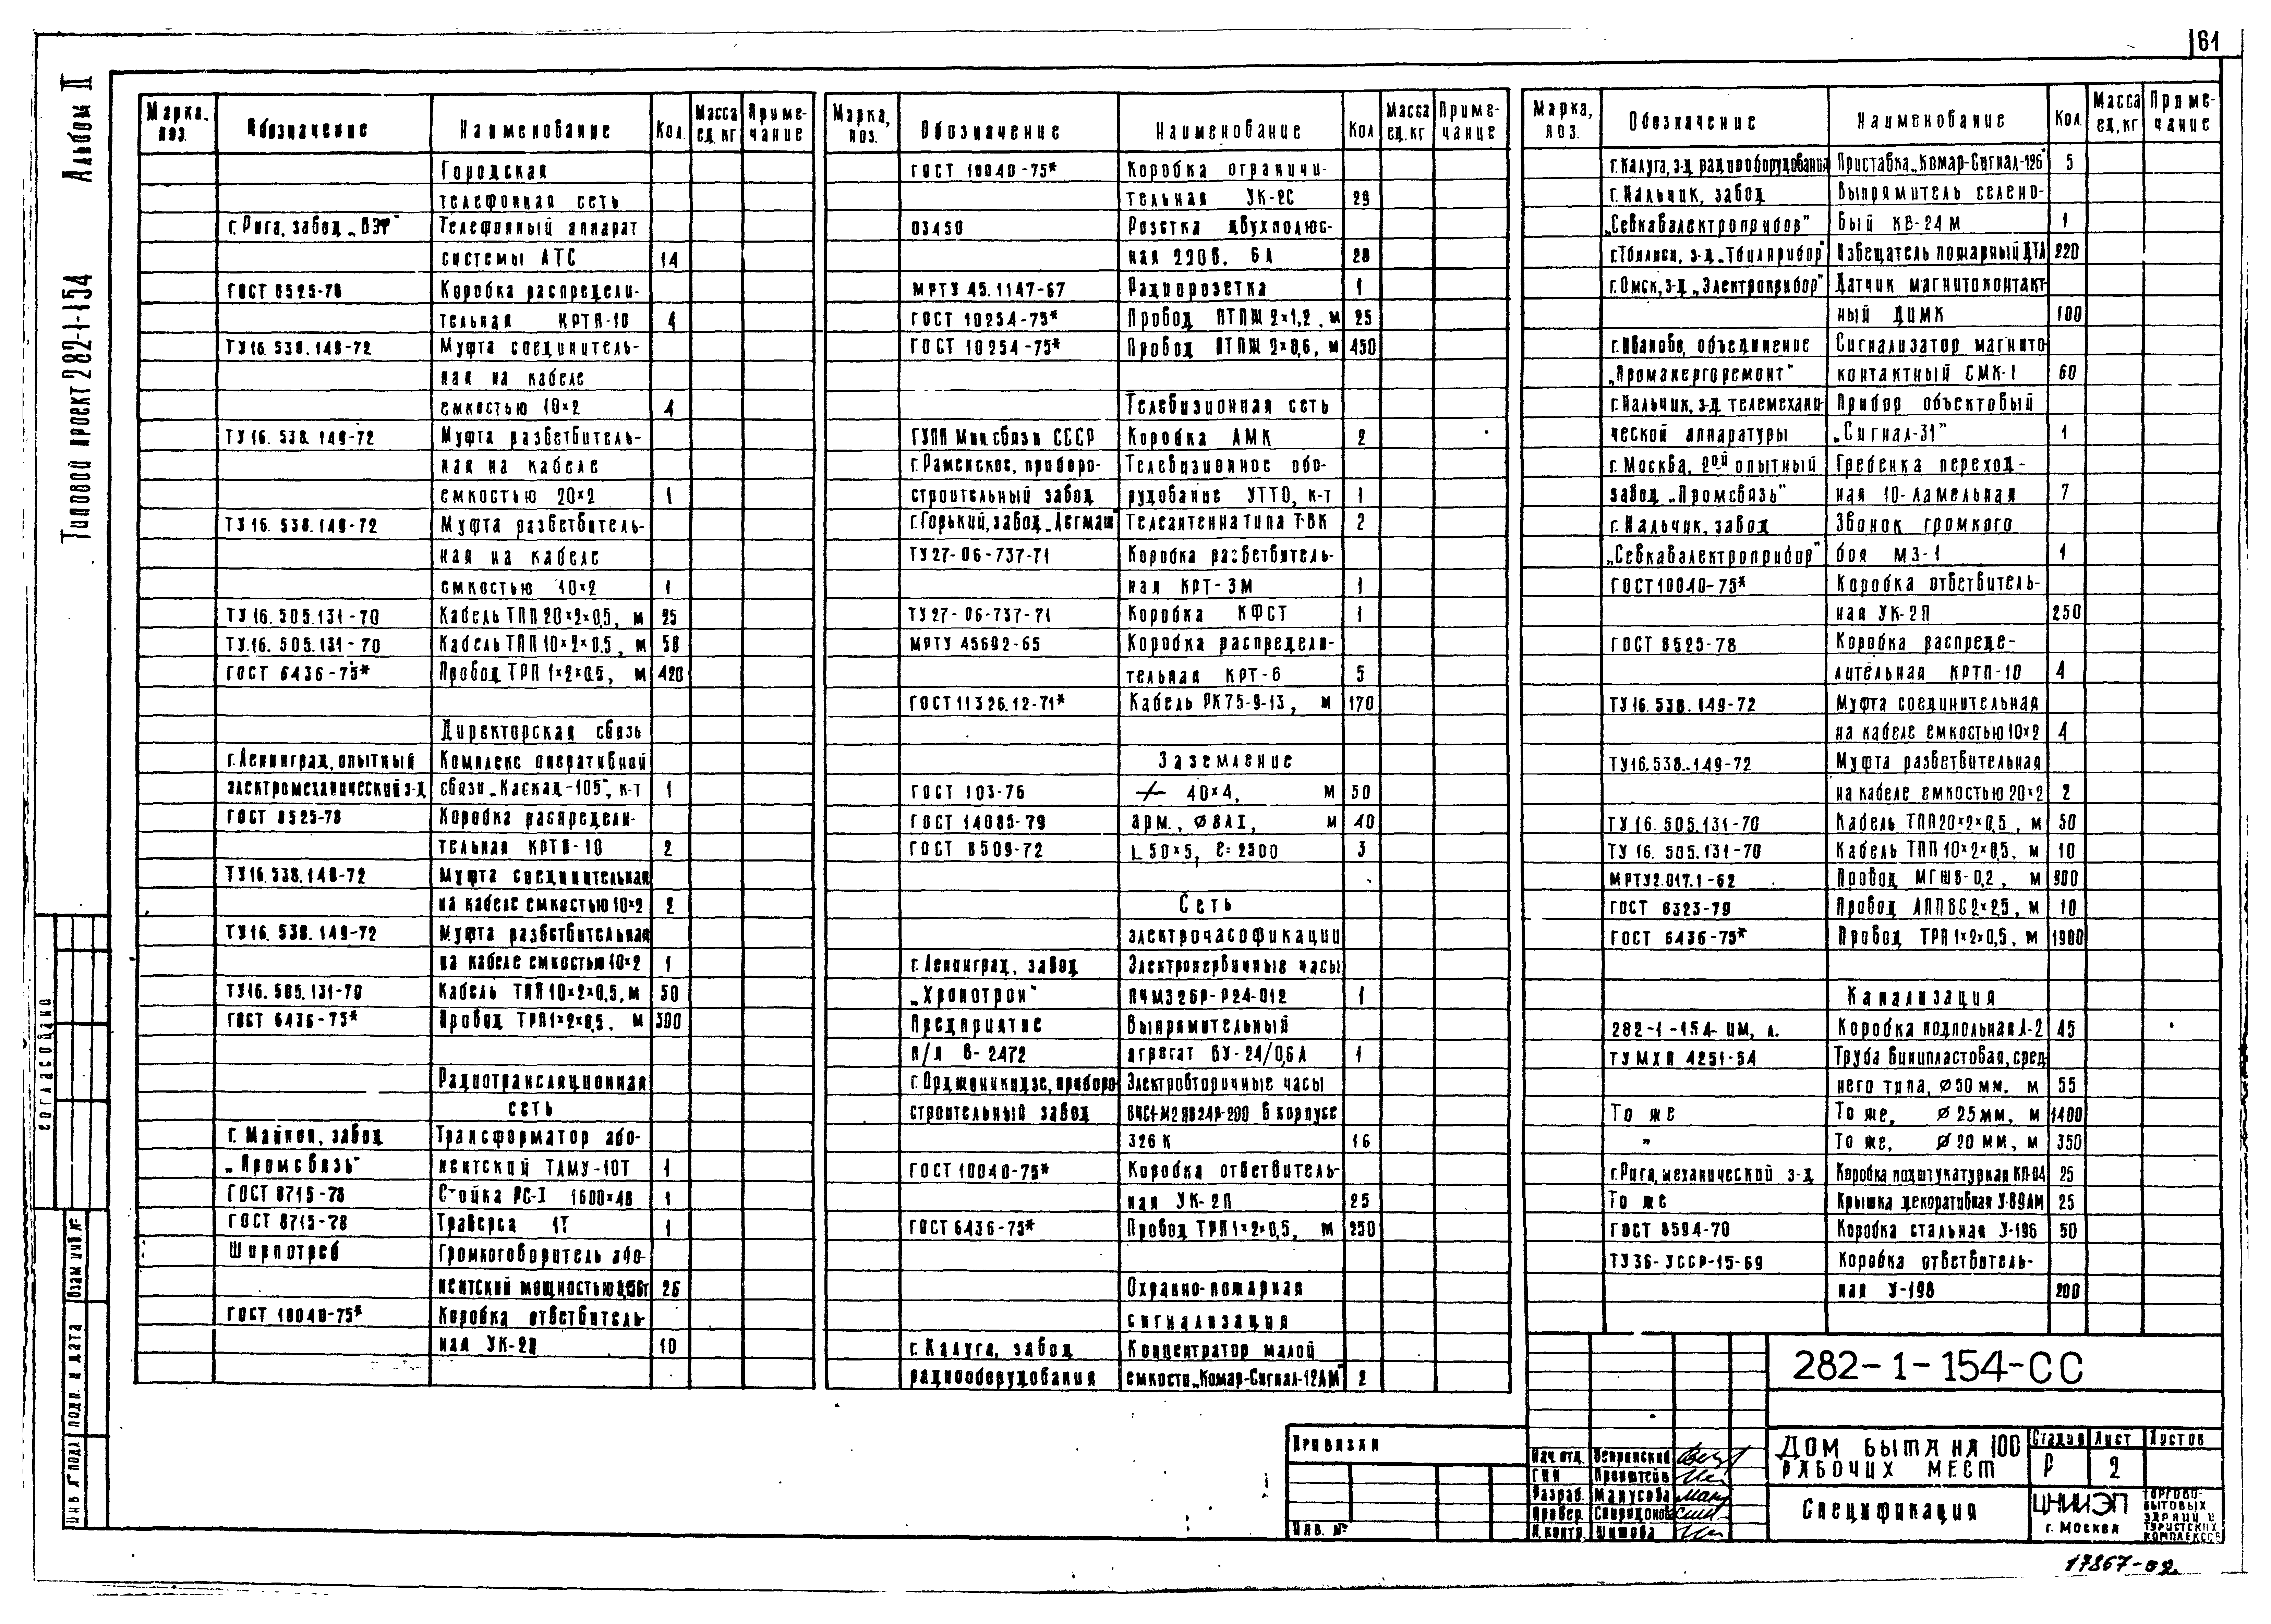 61
Типовой проект 282-1-154 Альбом II
Марка, поз. Обозначение Наименование Кол. Масса ед. кг Приме-чание
Городская
телефонная сеть
г. Рига, завод „ВЭФ" Телефонный аппарат
системы АТС 14
ГОСТ 8525-78 Коробка распредели-
тельная КРТП-10 4
ТУ16.538.149-72 Муфта соединитель-
ная на кабеле
емкостью 10×2 4
ТУ16.538.149-72 Муфта разветвитель-
ная на кабеле
емкостью 20×2 1
ТУ16.538.149-72 Муфта разветвитель-
ная на кабеле
емкостью 10×2 1
ТУ16.505.131-70 Кабель ТПП 20×2×0,5, м 25
ТУ.16.505.131-70 Кабель ТПП 10×2×0.5, м 58
ГОСТ 6436-75* Провод ТРП 1×2×0.5, м 420
Директорская связь
г. Ленинград, опытный Комплекс оперативной
электромеханический з-д связи „Каскад-105", к-т 1
ГОСТ 8525-78 Коробка распредели-
тельная КРТП-10 2
ТУ16.538.149-72 Муфта соединительная
на кабеле емкостью 10×2 2
ТУ16.538.149-72 Муфта разветвительная
на кабеле емкостью 10×2 1
ТУ16.505.131-70 Кабель ТПП 10×2×0,5, м 50
ГОСТ 6436-75* Провод ТРП 1×2×0,5, м 300
Радиотрансляционная
сеть
г. Майкоп, завод Трансформатор або-
„Промсвязь" нентский ТАМУ-10Т 1
ГОСТ 8715-78 Стойка РС-I 1600×48 1
ГОСТ 8715-78 Траверса 1Т 1
Ширпотреб Громкоговоритель або-
нентский мощностью 26
ГОСТ 10040-75* Коробка ответвитель-
ная УК-2П 10
Марка, поз. Обозначение Наименование Кол Масса ед. кг Приме-чание
ГОСТ 10040-75* Коробка ограничи-
тельная УК-2С 29
03450 Розетка двухполюс-
ная 220в. 6А 28
МРТУ 45.1147-67 Радиорозетка 1
ГОСТ 10254-75* Провод ПТПЖ 2×1,2, м 25
ГОСТ 10254-75* Провод ПТПЖ 2×0,6, м 450
Телевизионная сеть
ГУПП Минсвязи СССР Коробка АМК 2
г. Раменское, приборо- Телевизионное обо-
строительный завод рудование УТТО, к-т 1
г. Горький, завод „Легмаш" Телеантенна типа ТВК 2
ТУ27-06-737-71 Коробка разветвитель-
ная КРТ-3М 1
ТУ27-06-737-71 Коробка КФСТ 1
МРТУ 45692-65 Коробка распредели-
тельная КРТ-6 5
ГОСТ 11326.12-71* Кабель РК75-9-13, м 170
Заземление
ГОСТ 103-76 40×4, м 50
ГОСТ 14085-79 арм., Ø8АI, м 40
ГОСТ 8509-72 L 50×5, ℓ=2500 3
Сеть
электрочасофикации
г. Ленинград, завод Электропервичные часы
„Хронотрон" ПЧМ3 26Р-Р24-012 1
Предприятие Выпрямительный
п/я В-2472 агрегат ВУ-24/0,6А 1
г. Орджоникидзе, приборо- Электровторичные часы
строительный завод в корпусе
326 К 16
ГОСТ 10040-75* Коробка ответвитель-
ная УК-2П 25
ГОСТ 6436-75* Провод ТРП 1×2×0,5, м 250
Охранно-пожарная
сигнализация
г. Калуга, завод Концентратор малой
радиооборудования емкости „Комар-Сигнал-12АМ" 2
Марка, поз. Обозначение Наименование Кол. Масса ед. кг Приме-чание
г. Калуга, з-д радиооборудования Приставка „Комар-Сигнал-12б" 5
г. Нальчик, завод Выпрямитель селено-
„Севкавэлектроприбор" вый КВ-24М 1
г. Тбилиси, з-д „Тбилприбор" Извещатель пожарный ДТЛ 220
г. Омск, з-д „Электроприбор" Датчик магнитоконтакт-
ный ДИМК 100
г. Иваново, объединение Сигнализатор магнито-
„Промэнергоремонт" контактный СМК-1 60
г. Нальчик, з-д телемехани- Прибор объектовый
ческой аппаратуры „Сигнал-31" 1
г. Москва, 2ой опытный Гребенка переход-
завод „Промсвязь" ная 10-ламельная 7
г. Нальчик, завод Звонок громкого
„Севкавэлектроприбор" боя МЗ-1 1
ГОСТ 10040-75* Коробка ответвитель-
ная УК-2П 250
ГОСТ 8525-78 Коробка распреде-
лительная КРТП-10 4
ТУ16.538.149-72 Муфта соединительная
на кабеле емкостью 10×2 4
ТУ16.538.149-72 Муфта разветвительная
на кабеле емкостью 20×2 2
ТУ16.505.131-70 Кабель ТПП 20×2×0,5, м 50
ТУ 16.505.131-70 Кабель ТПП 10×2×0,5, м 10
МРТУ2.017.1-62 Провод МГШВ-0,2, м 900
ГОСТ 6323-79 Провод АППВС 2×2,5, м 10
ГОСТ 6436-75* Провод ТРП 1×2×0,5, м 1900
Канализация
282-1-154-ИМ, л. Коробка подпольная Л-2 45
ТУ МХП 4251-54 Труба винипластовая, сред-
него типа, Ø50 мм. м 55
То же То же, Ø 25мм, м 1400
" То же, Ø 20 мм, м 350
г. Рига, механический з-д Коробка подштукатурная КП-04 25
То же Крышка декоративная У-89АМ 25
ГОСТ 8594-70 Коробка стальная У-196 50
ТУ36-УССР-15-69 Коробка ответвитель-
ная У-198 200
Согласовано
Взам инв. №
Подп. и дата
Инв № подл
Привязан
Инв. №
282-1-154-СС
Нач. отд.
ГИП
Разраб. Манусова
Провер. Спиридонова
Н. контр. Шишова
Дом быта на 100
рабочих мест
Стадия Лист Листов
Р 2
Спецификация
ЦНИИЭП
г. Москва
торгово-
бытовых
зданий и
туристских
комплексов
17867-02